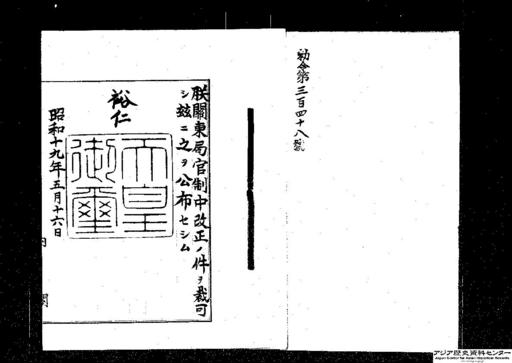 勅令第三百四十八號
朕關東局官制中改正ノ件ヲ裁可
シ玆ニ之ヲ公布セシム
裕仁
天皇
御璽
昭和十九年五月十六日
内閣
アジア歴史資料センター
Japan Center for Asian Historical Records